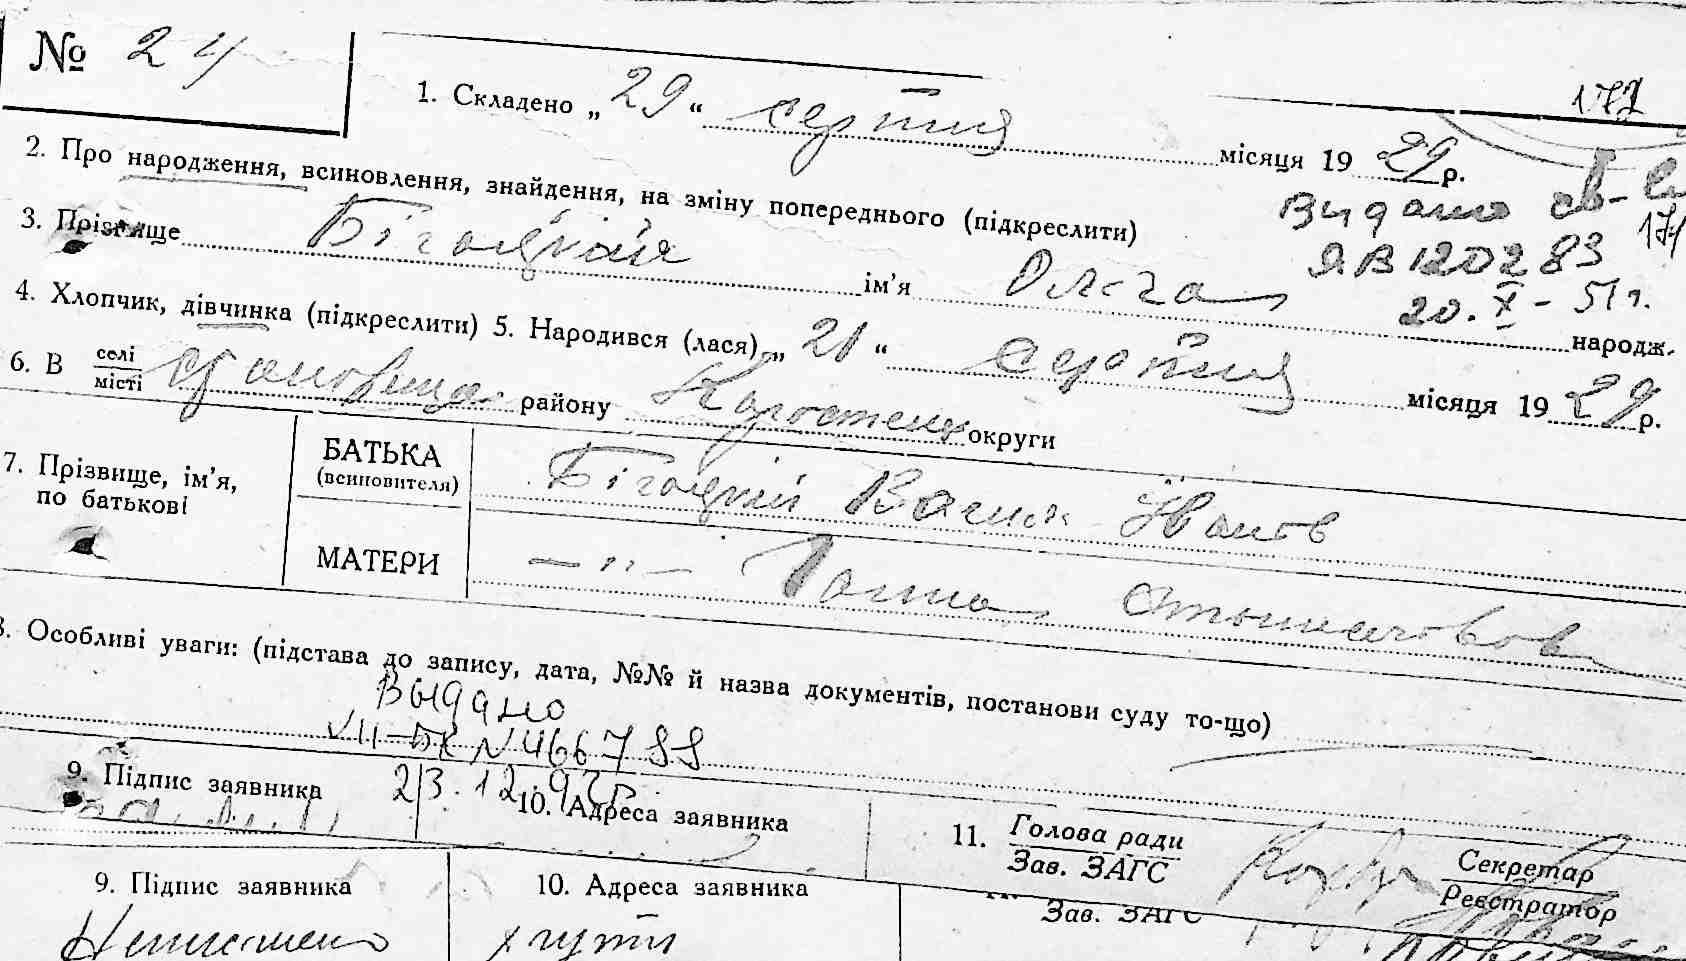 № 24
172
1. Складено „29“ серпня місяця 1929 р.
2. Про народження, всиновлення, знайдення, на зміну попереднього (підкреслити)
Видано св-
174
3. Прізвище Бігоцкій ім’я Ольга
ЯВ 120283
20.X-51 г.
4. Хлопчик, дівчинка (підкреслити) 5. Народився (лася) „21“ серпня місяця 1929 р.
народж.
6. В селі місті району Коростенск округи
7. Прізвище, ім’я, по батькові
БАТЬКА (всиновителя) Бігоцкій Васил Іванов
МАТЕРИ —〃— Ганна
8. Особливі уваги: (підстава до запису, дата, №№ й назва документів, постанови суду то-що)
Выдано
VII-БК N 466788
23.12.92г.
9. Підпис заявника
10. Адреса заявника
11. Голова ради
Зав. ЗАГС
Секретар
Реєстратор
9. Підпис заявника
10. Адреса заявника
Зав. ЗАГС